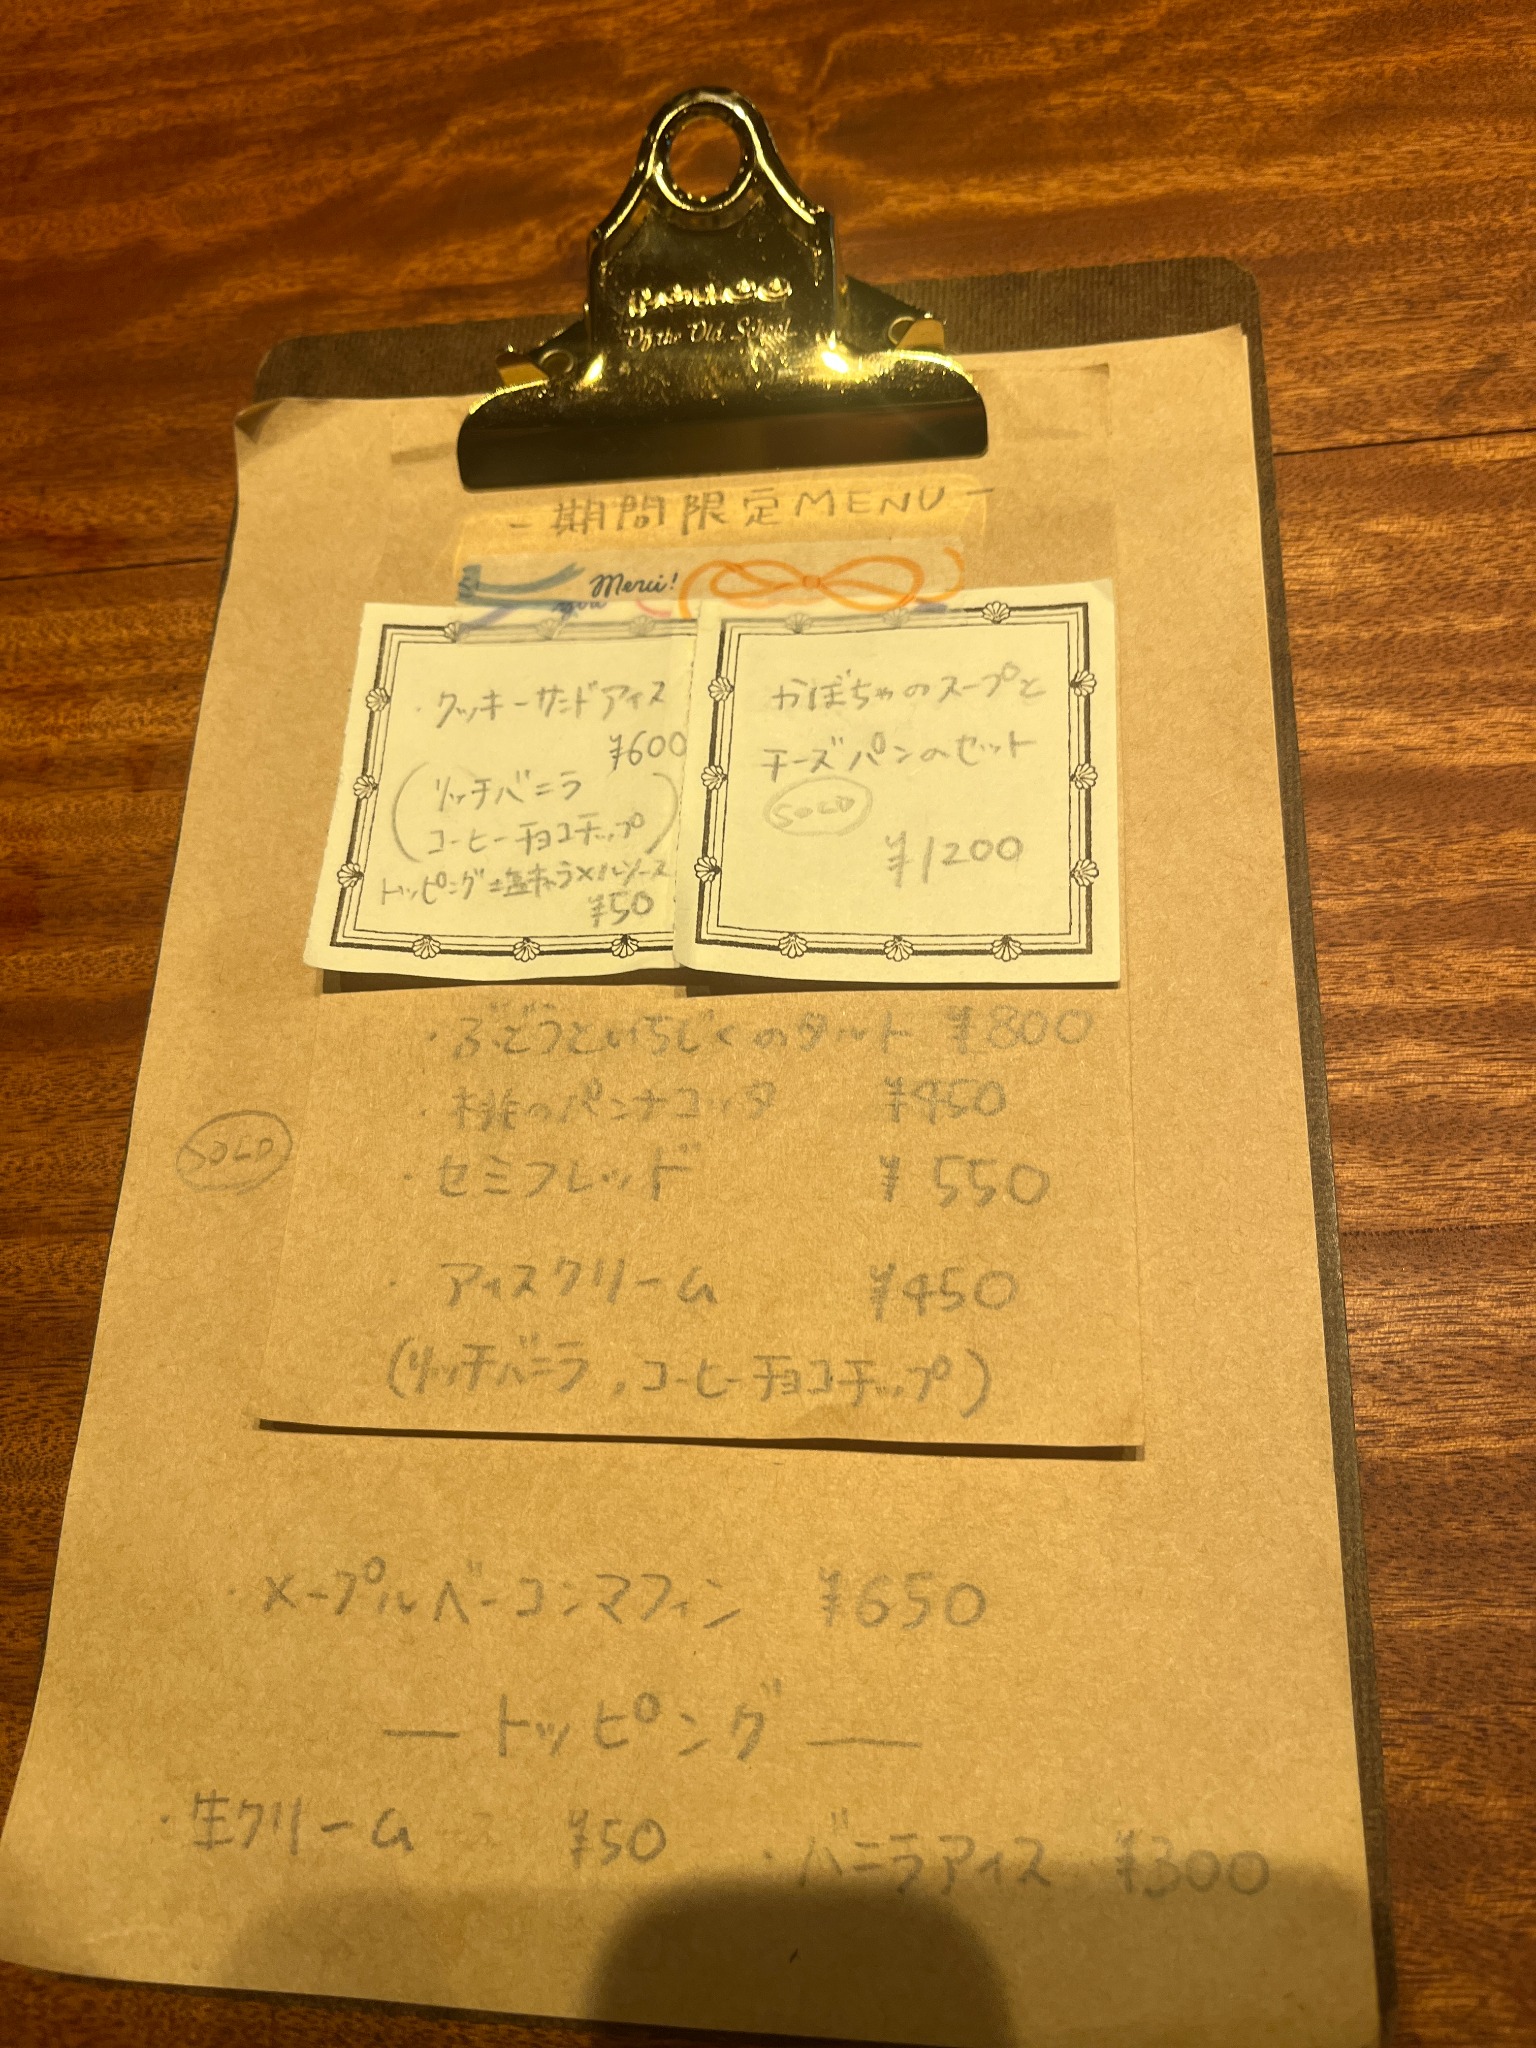 Of the Old School
-期間限定MENU-
Merci!
you
・クッキーサンドアイス
¥600
(リッチバニラ
コーヒーチョコチップ)
トッピング:塩キャラメルソース
¥50
かぼちゃのスープと
チーズパンのセット
SOLD
¥1200
・ぶどうといちじくのタルト ¥800
・桃のパンナコッタ ¥450
SOLD
・セミフレッド ¥550
・アイスクリーム ¥450
(リッチバニラ, コーヒーチョコチップ)
・メープルベーコンマフィン ¥650
— トッピング —
・生クリーム ¥50
・バニラアイス ¥300